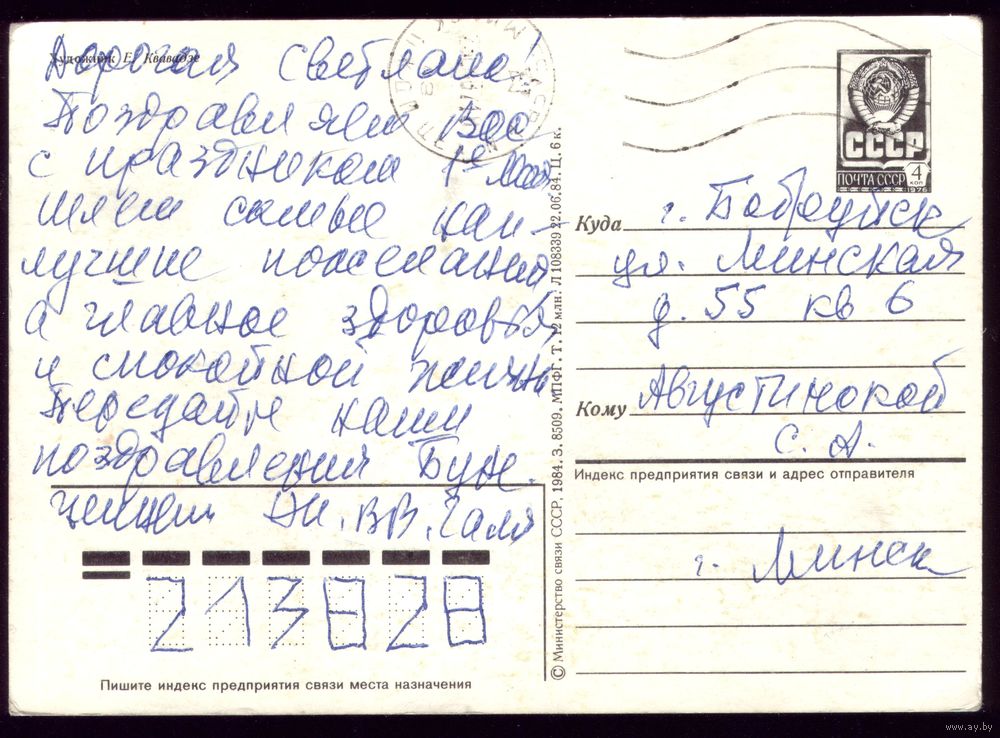 Художник Е. Квавадзе
Дорогая Светлана!
Поздравляем Вас
с праздником 1е Мая
шлем самые наи-
лучшие пожелания
а главное здоровья
и спокойной жизни
Передайте наши
поздравления
Галя
213828
Пишите индекс предприятия связи места назначения
© Министерство связи СССР. 1984. З. 8509. МПФГ. Т. 12 млн. Л 108339 22.06.84. Ц. 6 к.
СССР
ПОЧТА СССР
4 коп
1976
Куда г. Бобруйск
ул. Минская
д. 55 кв 6
Кому Августинской
С. А.
Индекс предприятия связи и адрес отправителя
г. Минск
www.ay.by